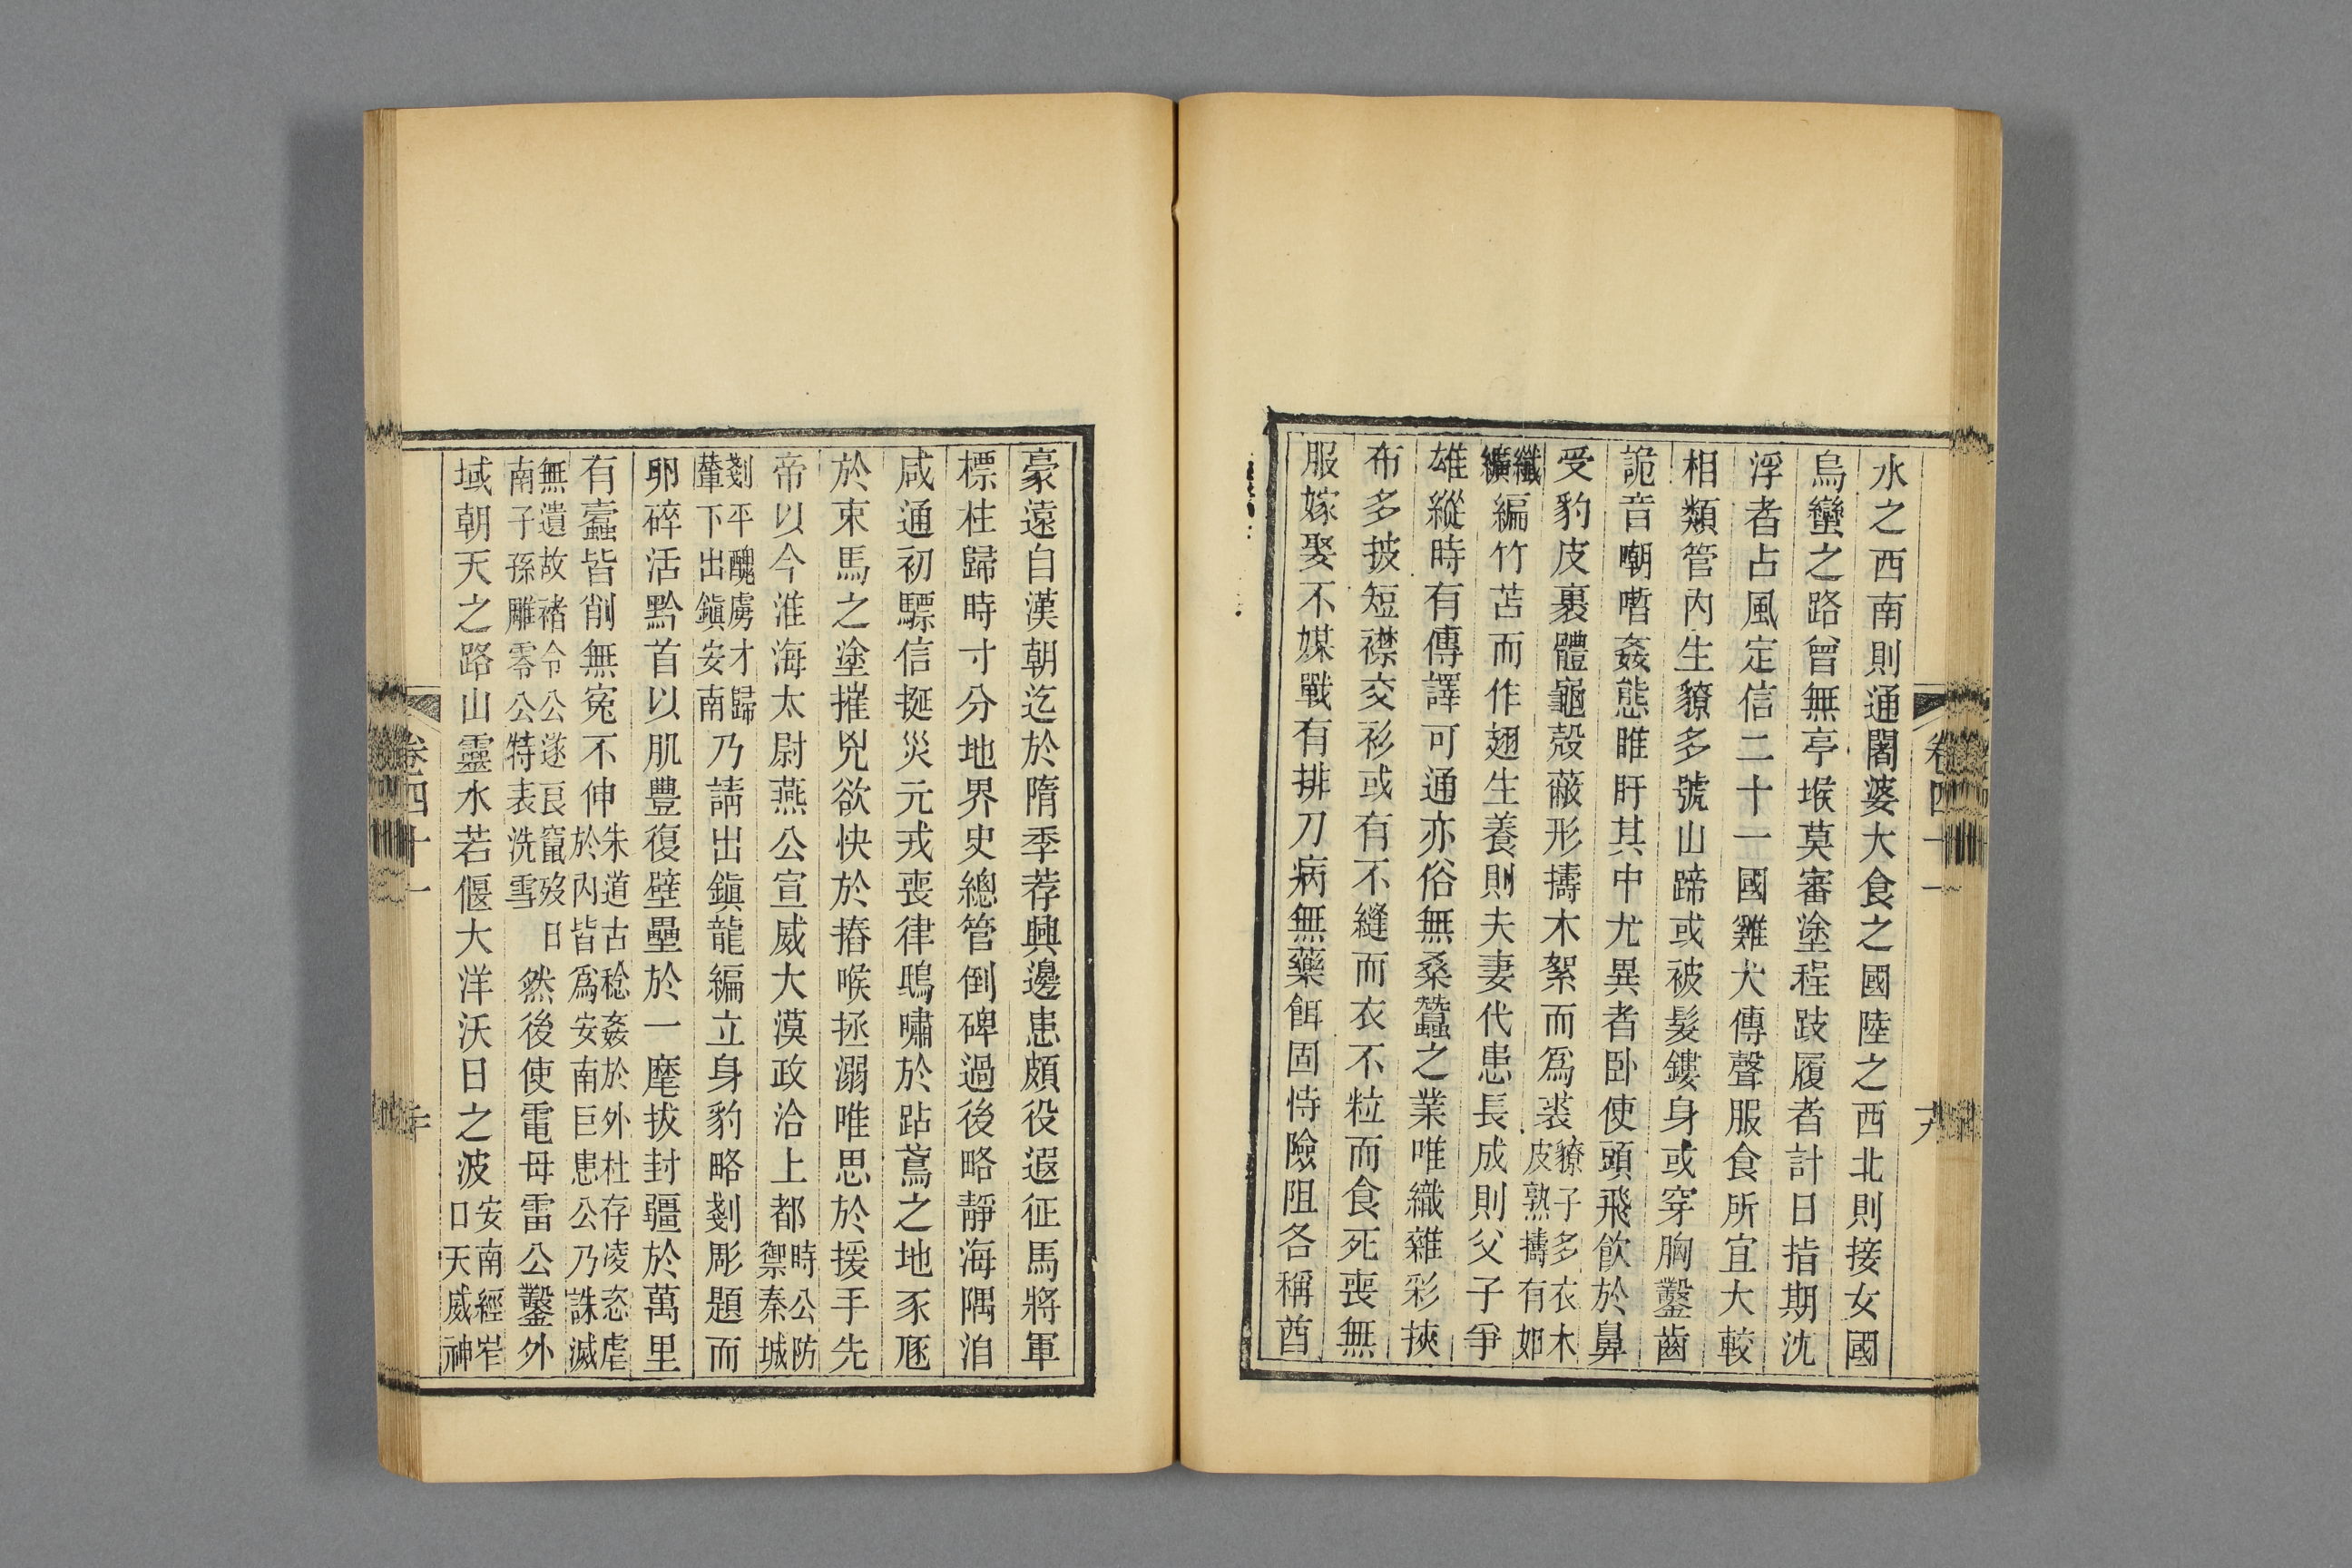 水之西南則通闍婆大食之國陸之西北則接女國
烏蠻之路曾無亭堠莫審塗程跂履者計日指期沈
浮者占風定信二十一國雞犬傳聲服食所宜大較
相類管內生獠多號山蹄或被髮鏤身或穿胸鑿齒
詭音嘲哳姦態睢盱其中尤異者臥使頭飛飲於鼻
受豹皮裹體龜殼蔽形擣木絮而爲裘獠子多衣木皮熟擣有如
纖纊編竹苫而作翅生養則夫妻代患長成則父子爭
雄縱時有傳譯可通亦俗無桑蠶之業唯織雜彩挾
布多披短襟交衫或有不縫而衣不粒而食死喪無
服嫁娶不媒戰有排刀病無藥餌固恃險阻各稱酋
卷四十一
豪遠自漢朝迄於隋季荐興邊患頗役遐征馬將軍
標柱歸時寸分地界史總管倒碑過後略靜海隅洎
咸通初驃信挻災元戎喪律鴟嘯於跕鳶之地豕豗
於束馬之塗摧兇欲快於摏喉拯溺唯思於援手先
帝以今淮海太尉燕公宣威大漠政洽上都時公防禦秦城
剗平醜虜才歸輦下出鎭安南乃請出鎭龍編立身豹略剗彫題而
卵碎活黔首以肌豐復壁壘於一麾拔封疆於萬里
有蠹皆削無寃不伸朱道古稔姦於外杜存凌恣虐於內皆爲安南巨患公乃誅滅
無遺故褚令公遂良竄歿日南子孫雕零公特表洗雪然後使電母雷公鑿外
域朝天之路山靈水若偃大洋沃日之波安南經岸口天威神
卷四十一